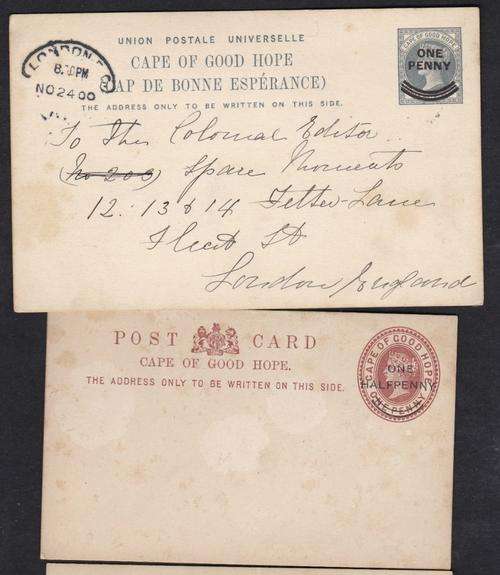 UNION POSTALE UNIVERSELLE
CAPE OF GOOD HOPE
(CAP DE BONNE ESPÉRANCE)
THE ADDRESS ONLY TO BE WRITTEN ON THIS SIDE.
CAPE OF GOOD HOPE
ONE
PENNY
LONDON
NO 24 00
To The Colonial Editor
(No 203) Spare Moments
12. 13 & 14 Fetter-Lane
Fleet St
London England
POST CARD
CAPE OF GOOD HOPE.
THE ADDRESS ONLY TO BE WRITTEN ON THIS SIDE.
CAPE OF GOOD HOPE
ONE
HALFPENNY
ONE PENNY